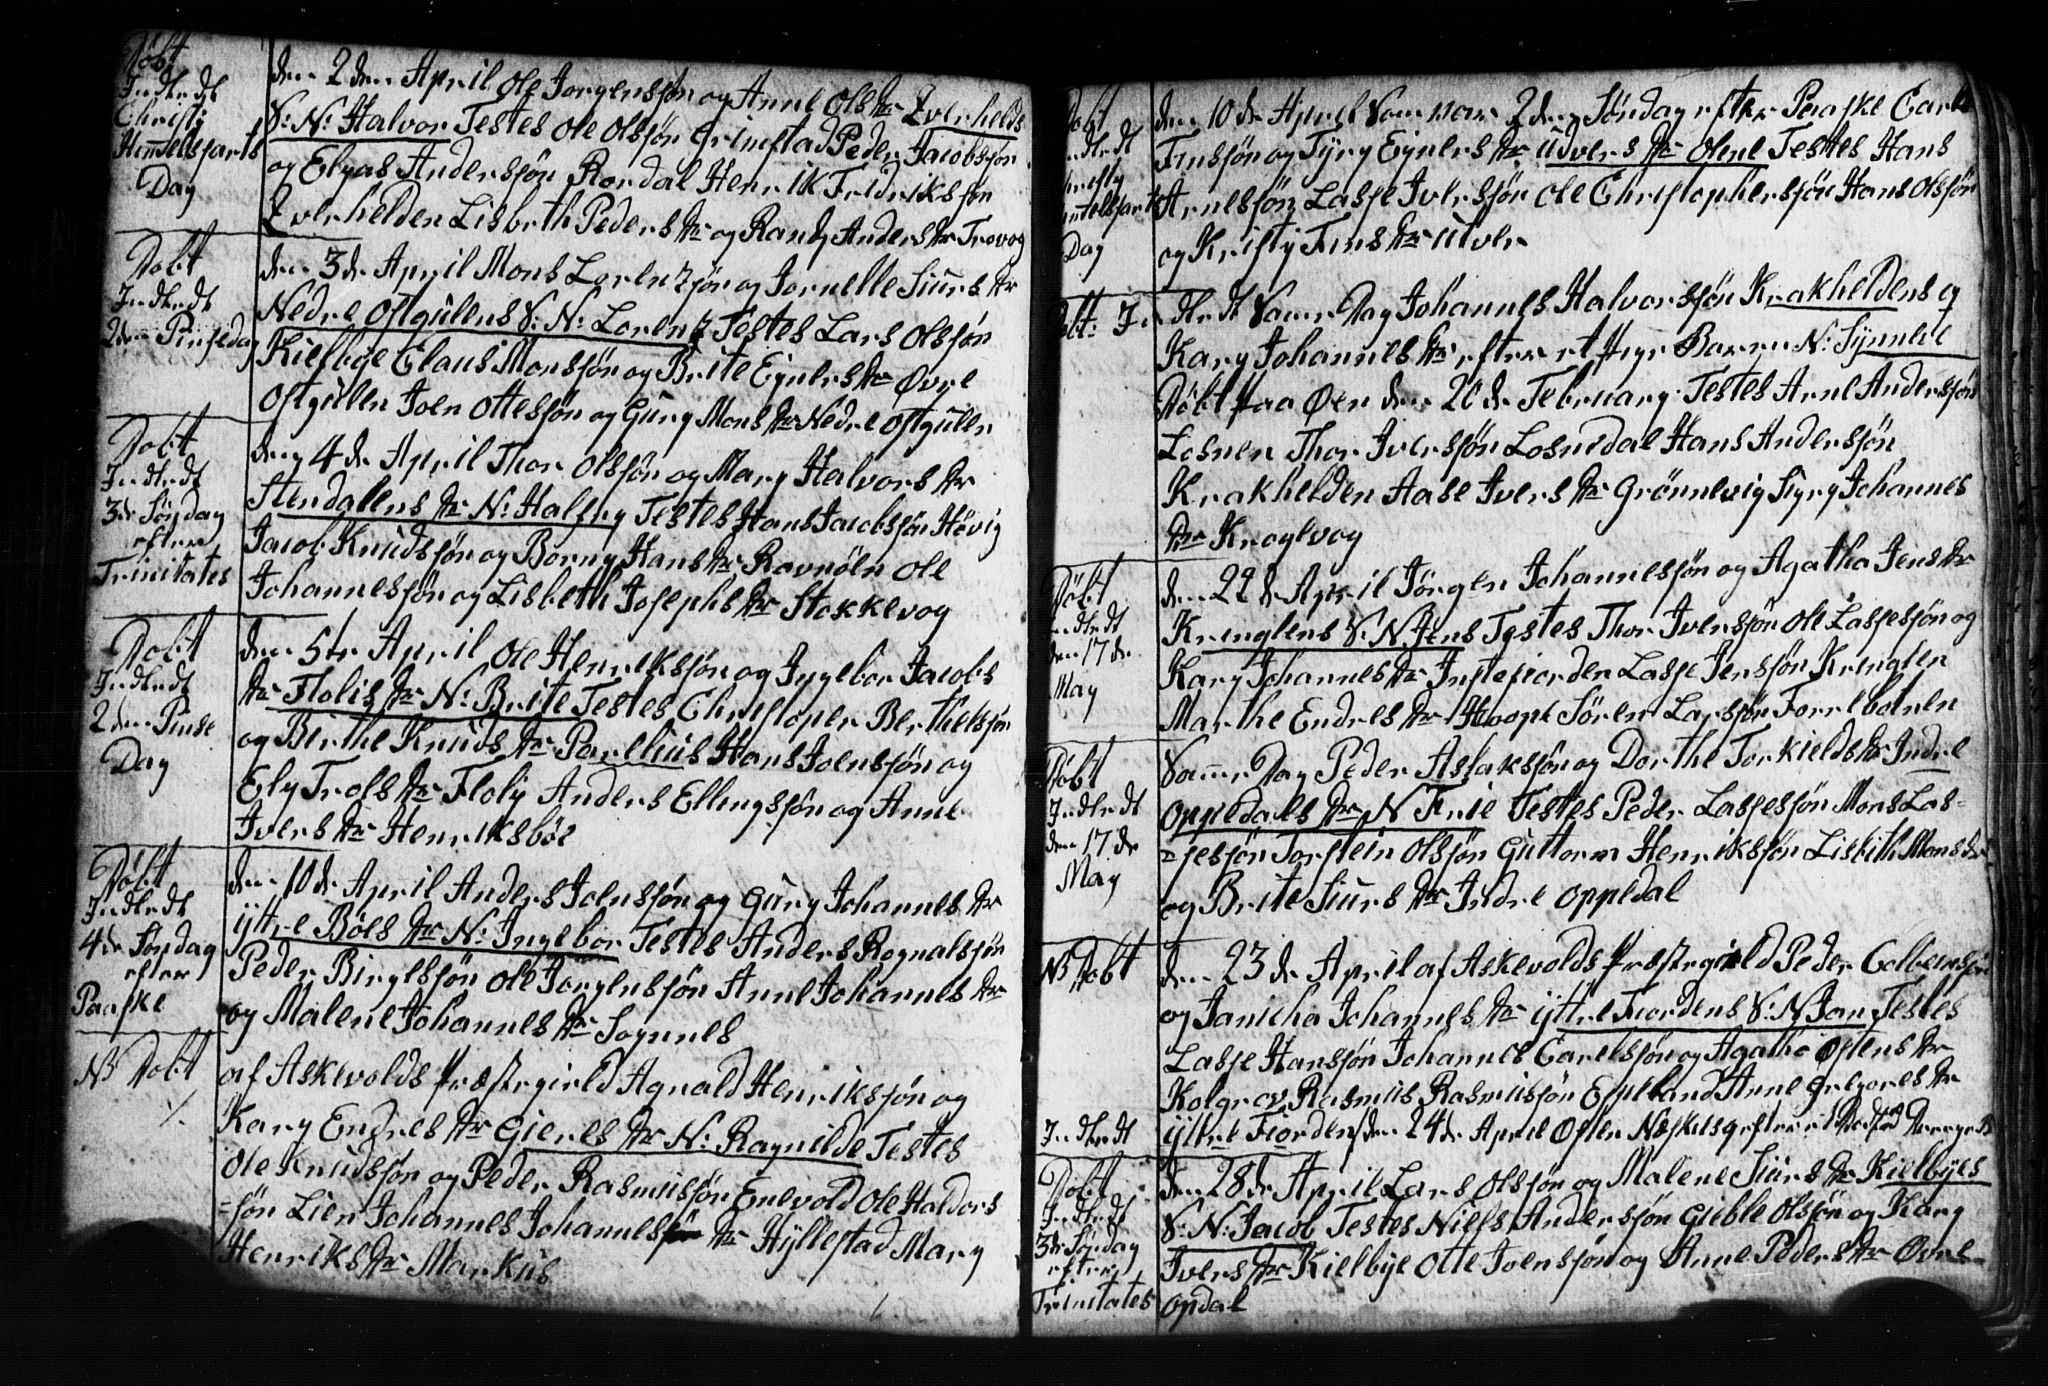 Døbt
Indledt
Christi
Himmelsfarts
Dag
den 2den April Ole Jørgensøn og Anne Ols dtr Zverhelds
S: N: Halvor Testes Ole Olsøn Grimstad Peder Jacobsøn
og Elyas Andersøn Rordal Henrik Fridriksøn
Zverhelden Lisbeth Peders dtr og Randj Anders dtr Trovog
Døbt
Indledt
2den Pinsedag
den 3de April Mons Lorenzsøn og Jornelle Siurs dtr
Nedre Ostgulens S: N: Lorenz Testes Lars Olsøn
Kielbye Claus Monssøn og Brite Eyners dtr Øvre
Ostgulen Joen Ottesøn og Gury Mons dtr Nedre Ostgulen
Døbt
Indledt
3de Søndag
efter
Trinitates
den 4de April Thor Olsøn og Mary Halvors dtr
Stendalens dtr N: Halfry Testes Hans Jacobsøn Høvig
Jacob Knudsøn og Borny Hans dtr Ravnøen Ole
Johannesøn og Lisbeth Josephs dtr Stokkevog
Døbt
Indledt
2den Pinse
Dag
den 5te April Ole Henreksøn og Ingebor Jacobs
dtr Flolis dtr N: Brite Testes Christoper Berthelsøn
og Birthe Knuds dtr Parelius Hans Joensøn og
Ely Trols dtr Floly Anders Ellingsøn og Anne
Ivers dtr Henriksbøe
Døbt
Indledt
4de Søndag
efter
Paaske
den 10de April Anders Joensøn og Gury Johannes dtr
ytre Bøes dtr N: Ingebor Testes Anders Rognalsøn
Peder Birgesøn Ole Jorgensøn Anne Johannes dtr
og Malene Johannes dtr Sognnes
NB Døbt
af Askevolds Præstegield Agnald Henriksøn og
Kary Endres dtr Gieres dtr N: Ragnilde Testes
Ole Knudsøn og Peder Rasmusøn Enevold Ole Haldors
=søn Lien Johannes Johannes dtr Hyllestad Mary
Henriks dtr Markus
Døbt
Indledt
Christy
Himmelsfarts
Dag
den 10de April som var 2den Søndag efter Paaske Carl
Finsøn og Tyry Eyners dtr Udvers dtr Oline Testes Hans
Arnesøn Lasse Iversøn Ole Christophersøn Hans Olsøn
og Kristy Fins dtr Utver
Døbt: Indledt Samme Dag Johannes Halvorsøn Krakheldens og
Kary Johannes dtr efter et Barn N: Synneve
Døbt paa Øen den 20de February Testes Arne Andersøn
Losnen Thor Iversøn Losnedal Hans Andersøn
Krakhelden Aase Ivers dtr Grønnevig Syry Johannes
dtr Kragevog
Døbt
Indledt
den 17de
May
den 22de April Jørgen Johannesøn og Agatha Jens dtr
Krenglens S: N Jens Testes Thor Iversøn Ole Lassesøn og
Kary Johannes dtr Instefiorden Lasse Jensøn Krenglen
Marthe Endres dtr Hoope Søren Larsøn Forrebotnen
Døbt
Indledt
den 17de
May
Samme Dag Peder Aslaksøn og Dorthe Torkields dtr Indre
Oppedals dtr N Trie Testes Peder Lassesøn Mons Las=
=sesøn Torstein Olsøn Guttorm Henriksøn Lisbith Mons dtr
og Brite Siurs dtr Indre Oppedal
NB Døbt
den 23de April af Askevolds Præstegield Peder Colbensøn
og Janicha Johannes dtr ytre Fiordens S: N Jan Testes
Lasse Hansøn Johannes Carelsøn og Agatha Østens dtr
Kolgrov Rasmus Rasmusøn Espeland Anne Gregores dtr
Indledt
ytre Fiorden den 24de April
Døbt
Indledt
3de Søndag
efter
Trinitates
den 28de April Lars Olsøn og Malene Siurs dtr Kielbyes
S: N: Jacob Testes Niels Andersøn Gieble Olsøn og Kary
Ivers dtr Kielbye Otte Joensøn og Anne Peders dtr Øvre
Opdal